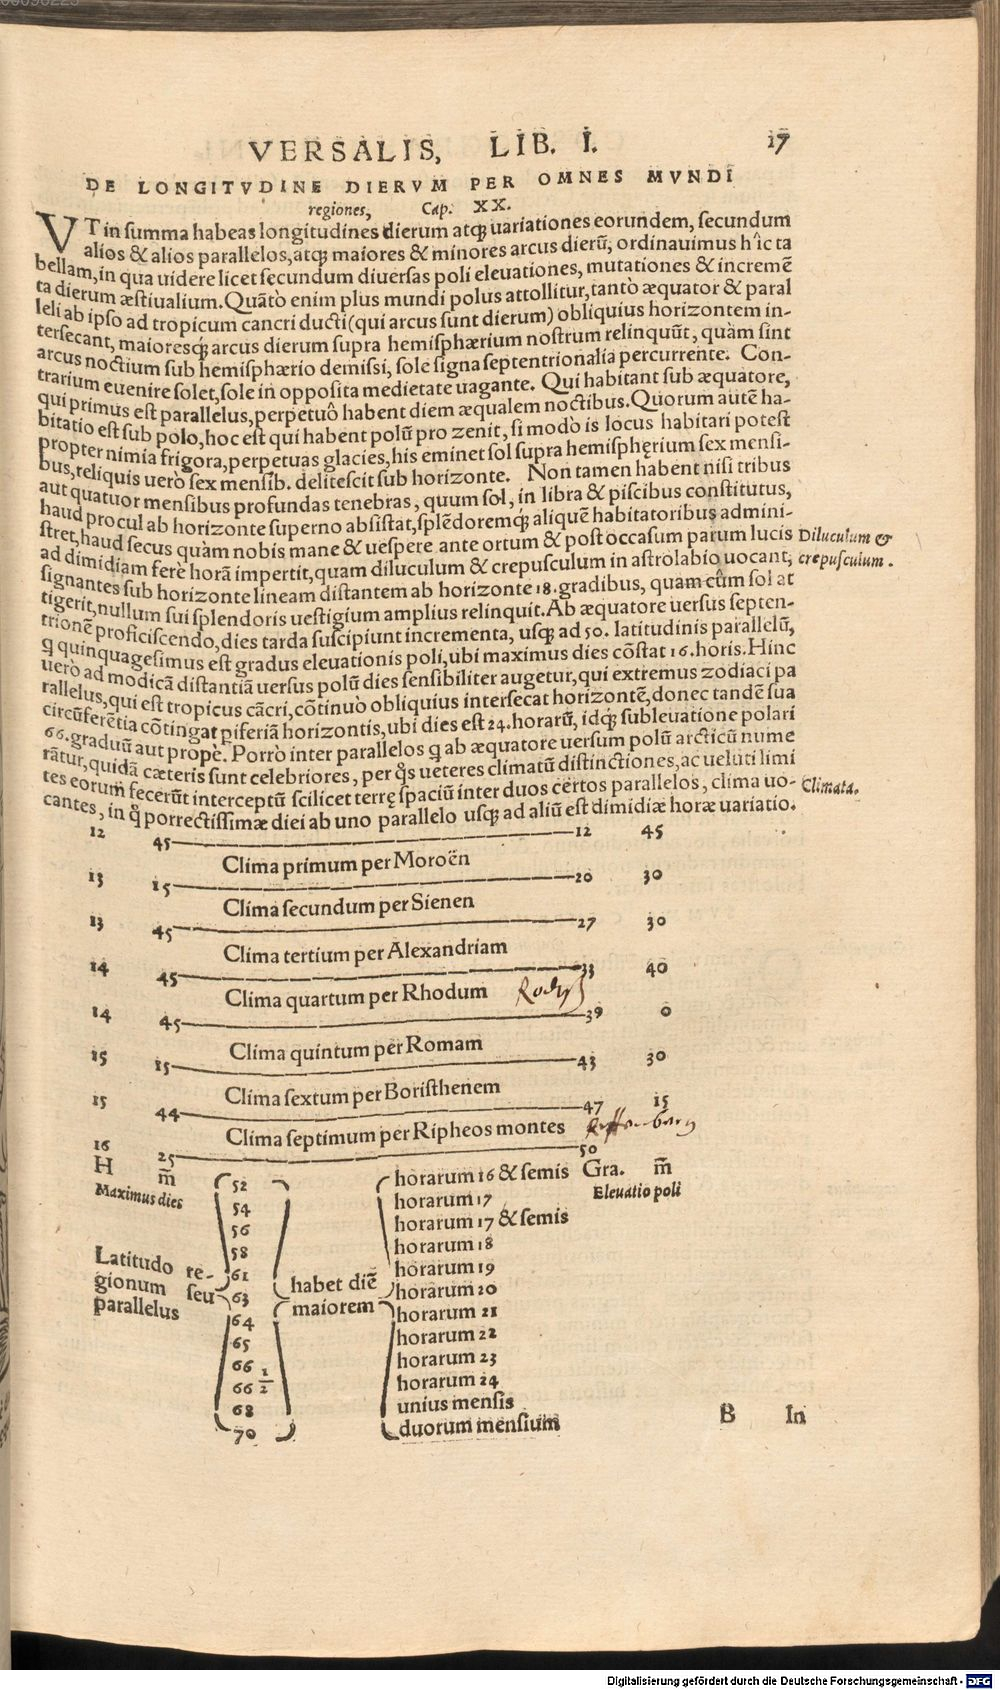 VERSALIS, LIB. I. 17
DE LONGITVDINE DIERVM PER OMNES MVNDI
regiones, Cap. XX.
VT in summa habeas longitudines dierum atq; uariationes eorundem, secundum
alios & alios parallelos, atq; maiores & minores arcus dierũ, ordinauimus hîc ta
bellam, in qua uidere licet secundum diuersas poli eleuationes, mutationes & incremē
ta dierum æstiualium. Quãtò enim plus mundi polus attollitur, tantò æquator & paral
leli ab ipso ad tropicum cancri ducti (qui arcus sunt dierum) obliquius horizontem in-
tersecant, maioresq́; arcus dierum supra hemisphærium nostrum relinquũt, quàm sint
arcus noctium sub hemisphærio demissi, sole signa septentrionalia percurrente. Con-
trarium euenire solet, sole in opposita medietate uagante. Qui habitant sub æquatore,
qui primus est parallelus, perpetuò habent diem æqualem noctibus. Quorum autē ha-
bitatio est sub polo, hoc est qui habent polũ pro zenit, si modò is locus habitari potest
propter nimia frigora, perpetuas glacies, his eminet sol supra hemisphęrium sex mensi-
bus, reliquis uerò sex mensib. delitescit sub horizonte. Non tamen habent nisi tribus
aut quatuor mensibus profundas tenebras, quum sol, in libra & piscibus constitutus,
haud procul ab horizonte superno absistat, splēdoremq́; aliquē habitatoribus admini-
stret, haud secus quàm nobis mane & uespere ante ortum & post occasum parum lucis
Diluculum &
ad dimidiam ferè horã impertit, quam diluculum & crepusculum in astrolabio uocant,
crepusculum.
signantes sub horizonte lineam distantem ab horizonte 18. gradibus, quam cùm sol at
tigerit, nullum sui splendoris uestigium amplius relinquit. Ab æquatore uersus septen-
trionē proficiscendo, dies tarda suscipiunt incrementa, usq; ad 50. latitudinis parallelũ,
q quinquagesimus est gradus eleuationis poli, ubi maximus dies cõstat 16. horis. Hinc
uerò ad modicã distantiã uersus polũ dies sensibiliter augetur, qui extremus zodiaci pa
rallelus, qui est tropicus cãcri, cõtinuò obliquius intersecat horizontē, donec tandē sua
circũferētia cõtingat piferiã horizontis, ubi dies est 24. horarũ, idq; subleuatione polari
66. graduũ aut propè. Porrò inter parallelos q ab æquatore uersum polũ arcticũ nume
rãtur, quidã cæteris sunt celebriores, per q̊s ueteres climatũ distinctiones, ac ueluti limi
tes eorum fecerũt interceptũ scilicet terrę spaciũ inter duos certos parallelos, clima uo-
Climata.
cantes, in q̊ porrectissimæ diei ab uno parallelo usq; ad aliũ est dimidiæ horæ uariatio.
12 45 12 45
Clima primum per Moroën
13 15 20 30
Clima secundum per Sienen
13 45 27 30
Clima tertium per Alexandriam
14 45 33 40
Clima quartum per Rhodum
14 45 39 0
Clima quintum per Romam
15 15 43 30
Clima sextum per Boristhenem
15 44 47 15
Clima septimum per Ripheos montes
16 25 50
H m̄ Gra. m̄
Maximus dies Eleuatio poli
Latitudo re-
gionum seu
parallelus
52
54
56
58
61
63
64
65
66
66 1/2
68
70
habet diē
maiorem
horarum 16 & semis
horarum 17
horarum 17 & semis
horarum 18
horarum 19
horarum 20
horarum 21
horarum 22
horarum 23
horarum 24
unius mensis
duorum mensium
B In
Digitalisierung gefördert durch die Deutsche Forschungsgemeinschaft - DFG